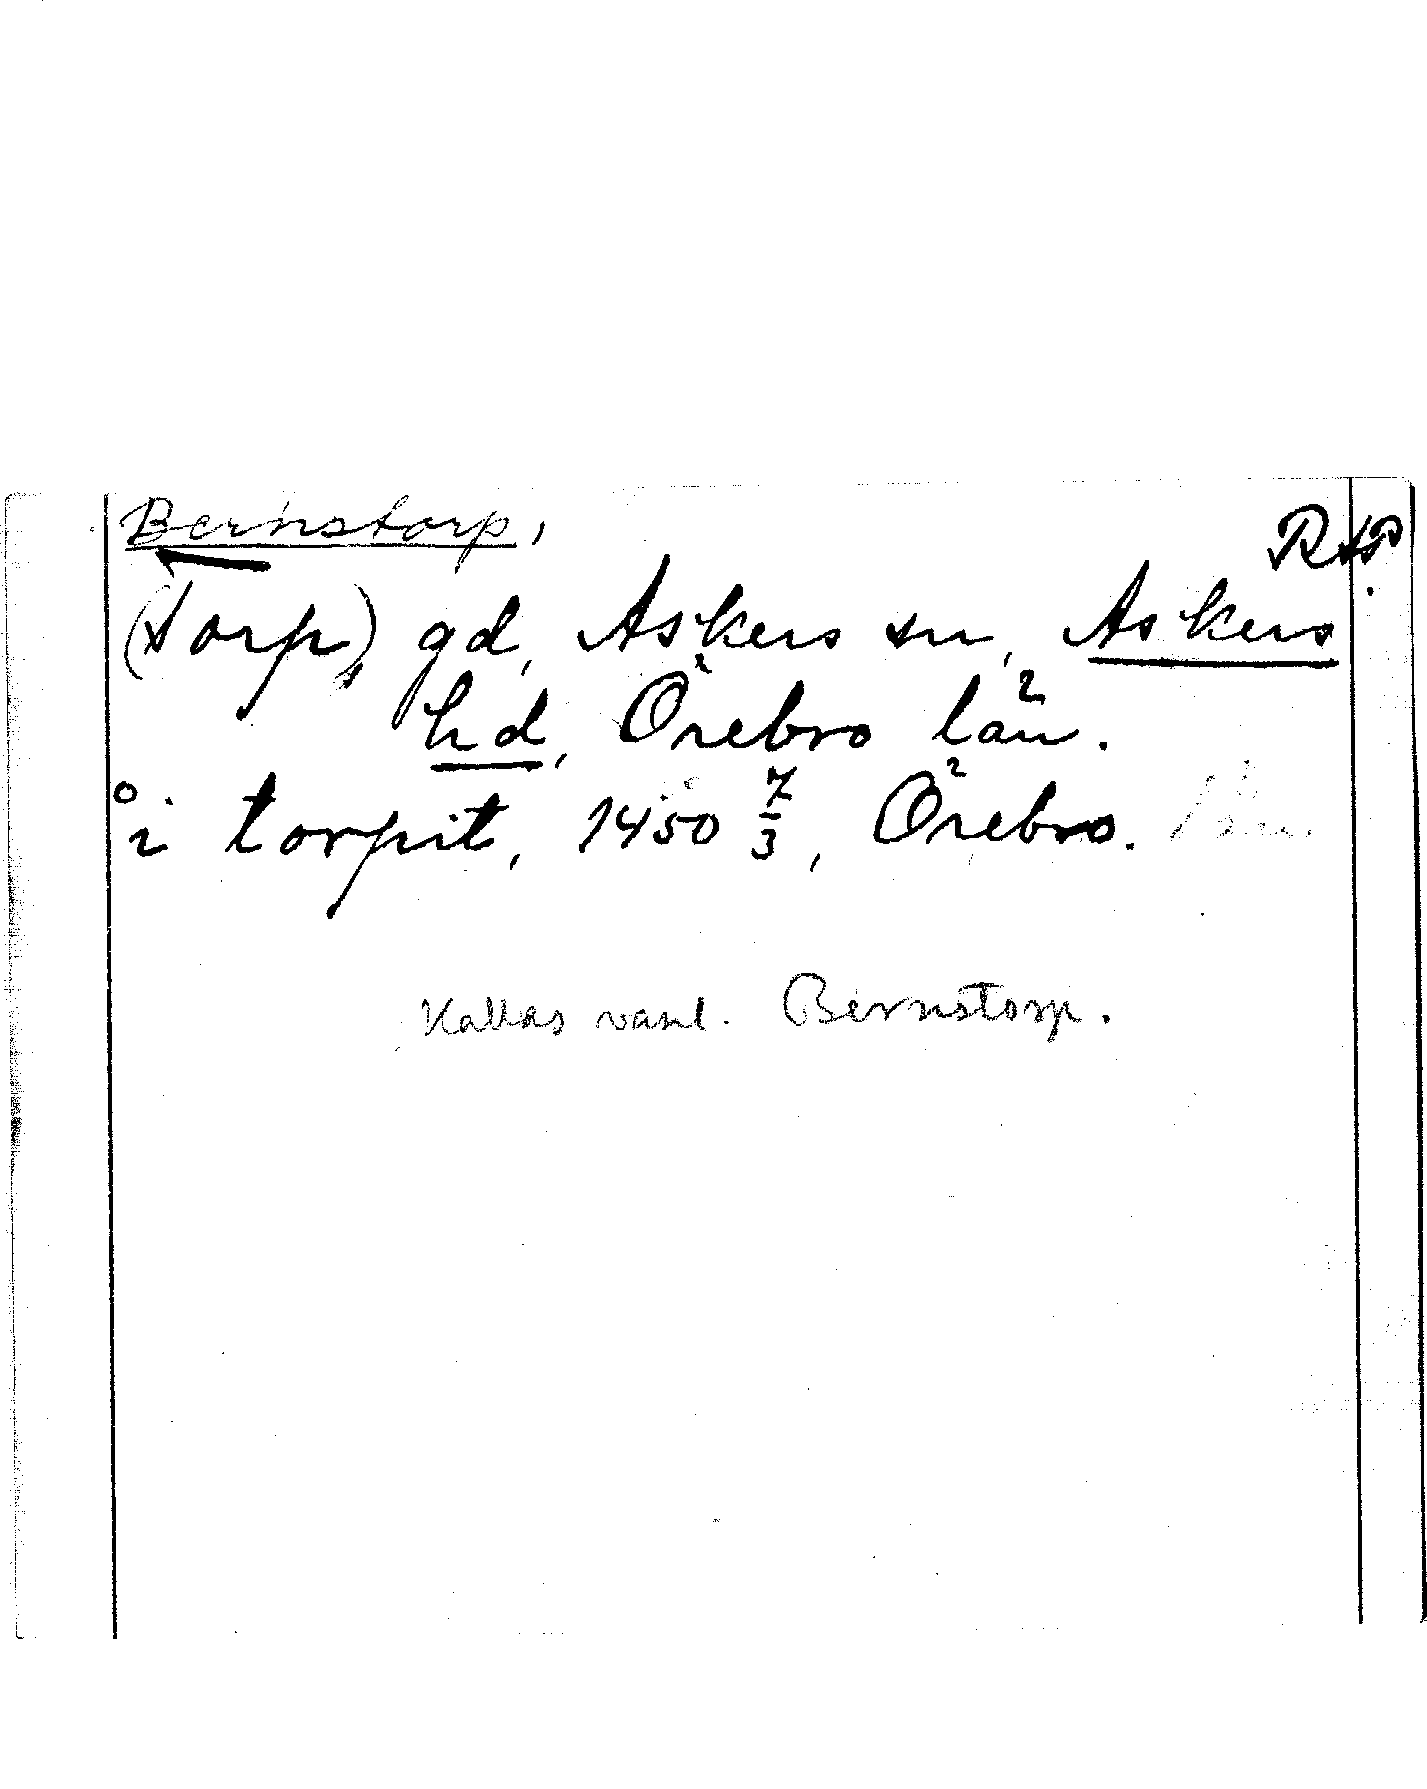 Bernstorp,
RAP
(Torp), gd, Askers sn, Askers
hd, Örebro län.
°i torpit, 1450 7/3, Örebro. län.
Kallas vanl. Bernstorp.